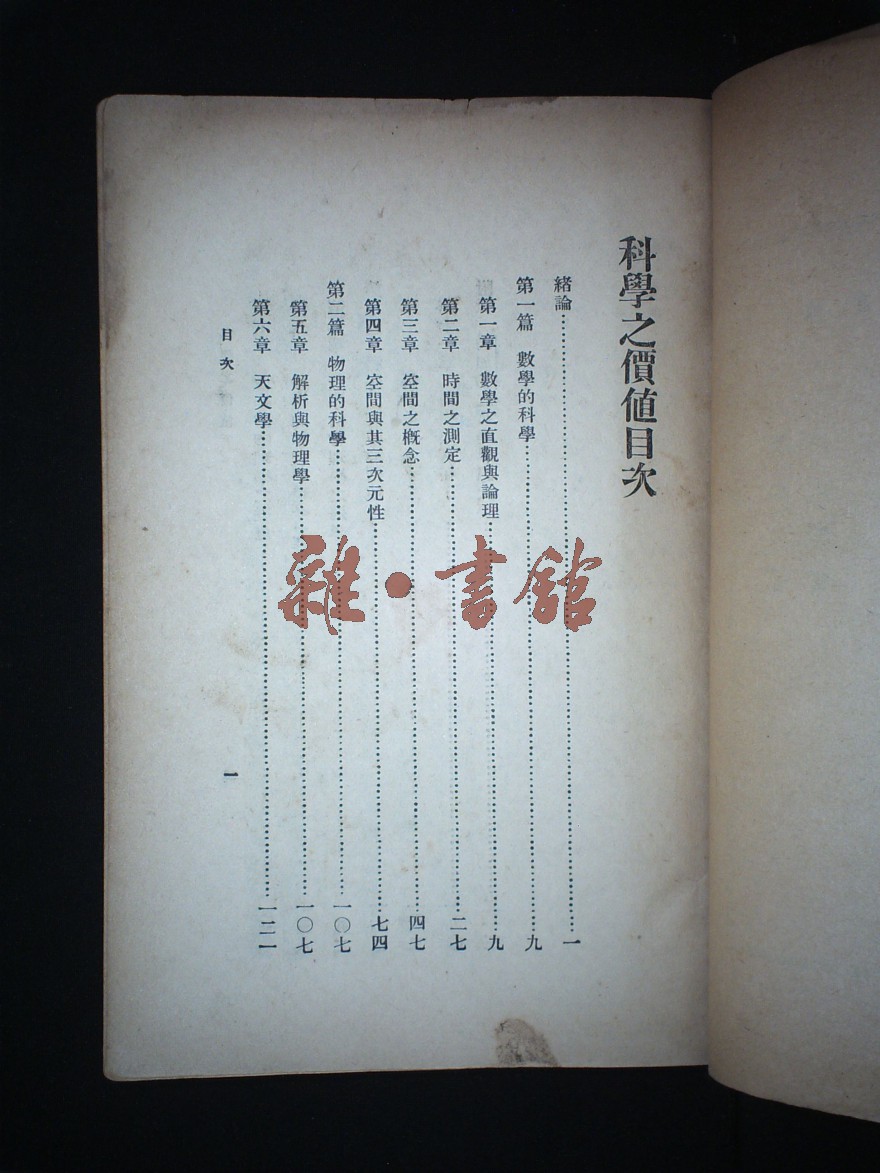 科學之價値目次
緒論………一
第一篇 數學的科學………九
第一章 數學之直觀與論理………九
第二章 時間之測定………二七
第三章 空間之槪念………四七
第四章 空間與其三次元性………七四
第二篇 物理的科學………一〇七
第五章 解析與物理學………一〇七
第六章 天文學………一二一
目次
一
雜·書館